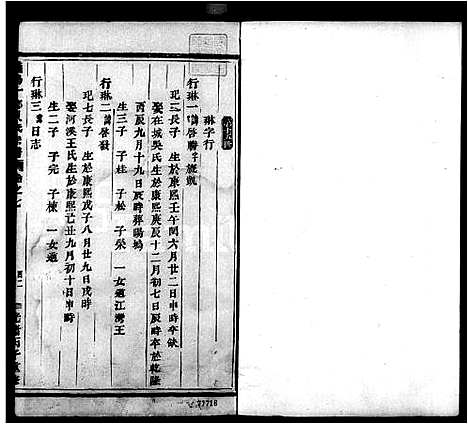 琳字行
行琳一 諱啓聯 字
玘二長子 生於康熙壬午閏六月廿二日申時卒缺
娶在城吳氏生於康熙庚辰十二月初七日辰時卒於乾隆
丙辰九月十九日辰時葬陽塢
生三子 子桂 子松 子榮 一女適江灣王
行琳二 諱啓發
玘七長子 生於康熙戊子八月廿九日戌時
娶河溪王氏生於康熙己丑九月初十日申時
生二子 子完 子棟 一女適
行琳三 諱日志
77718